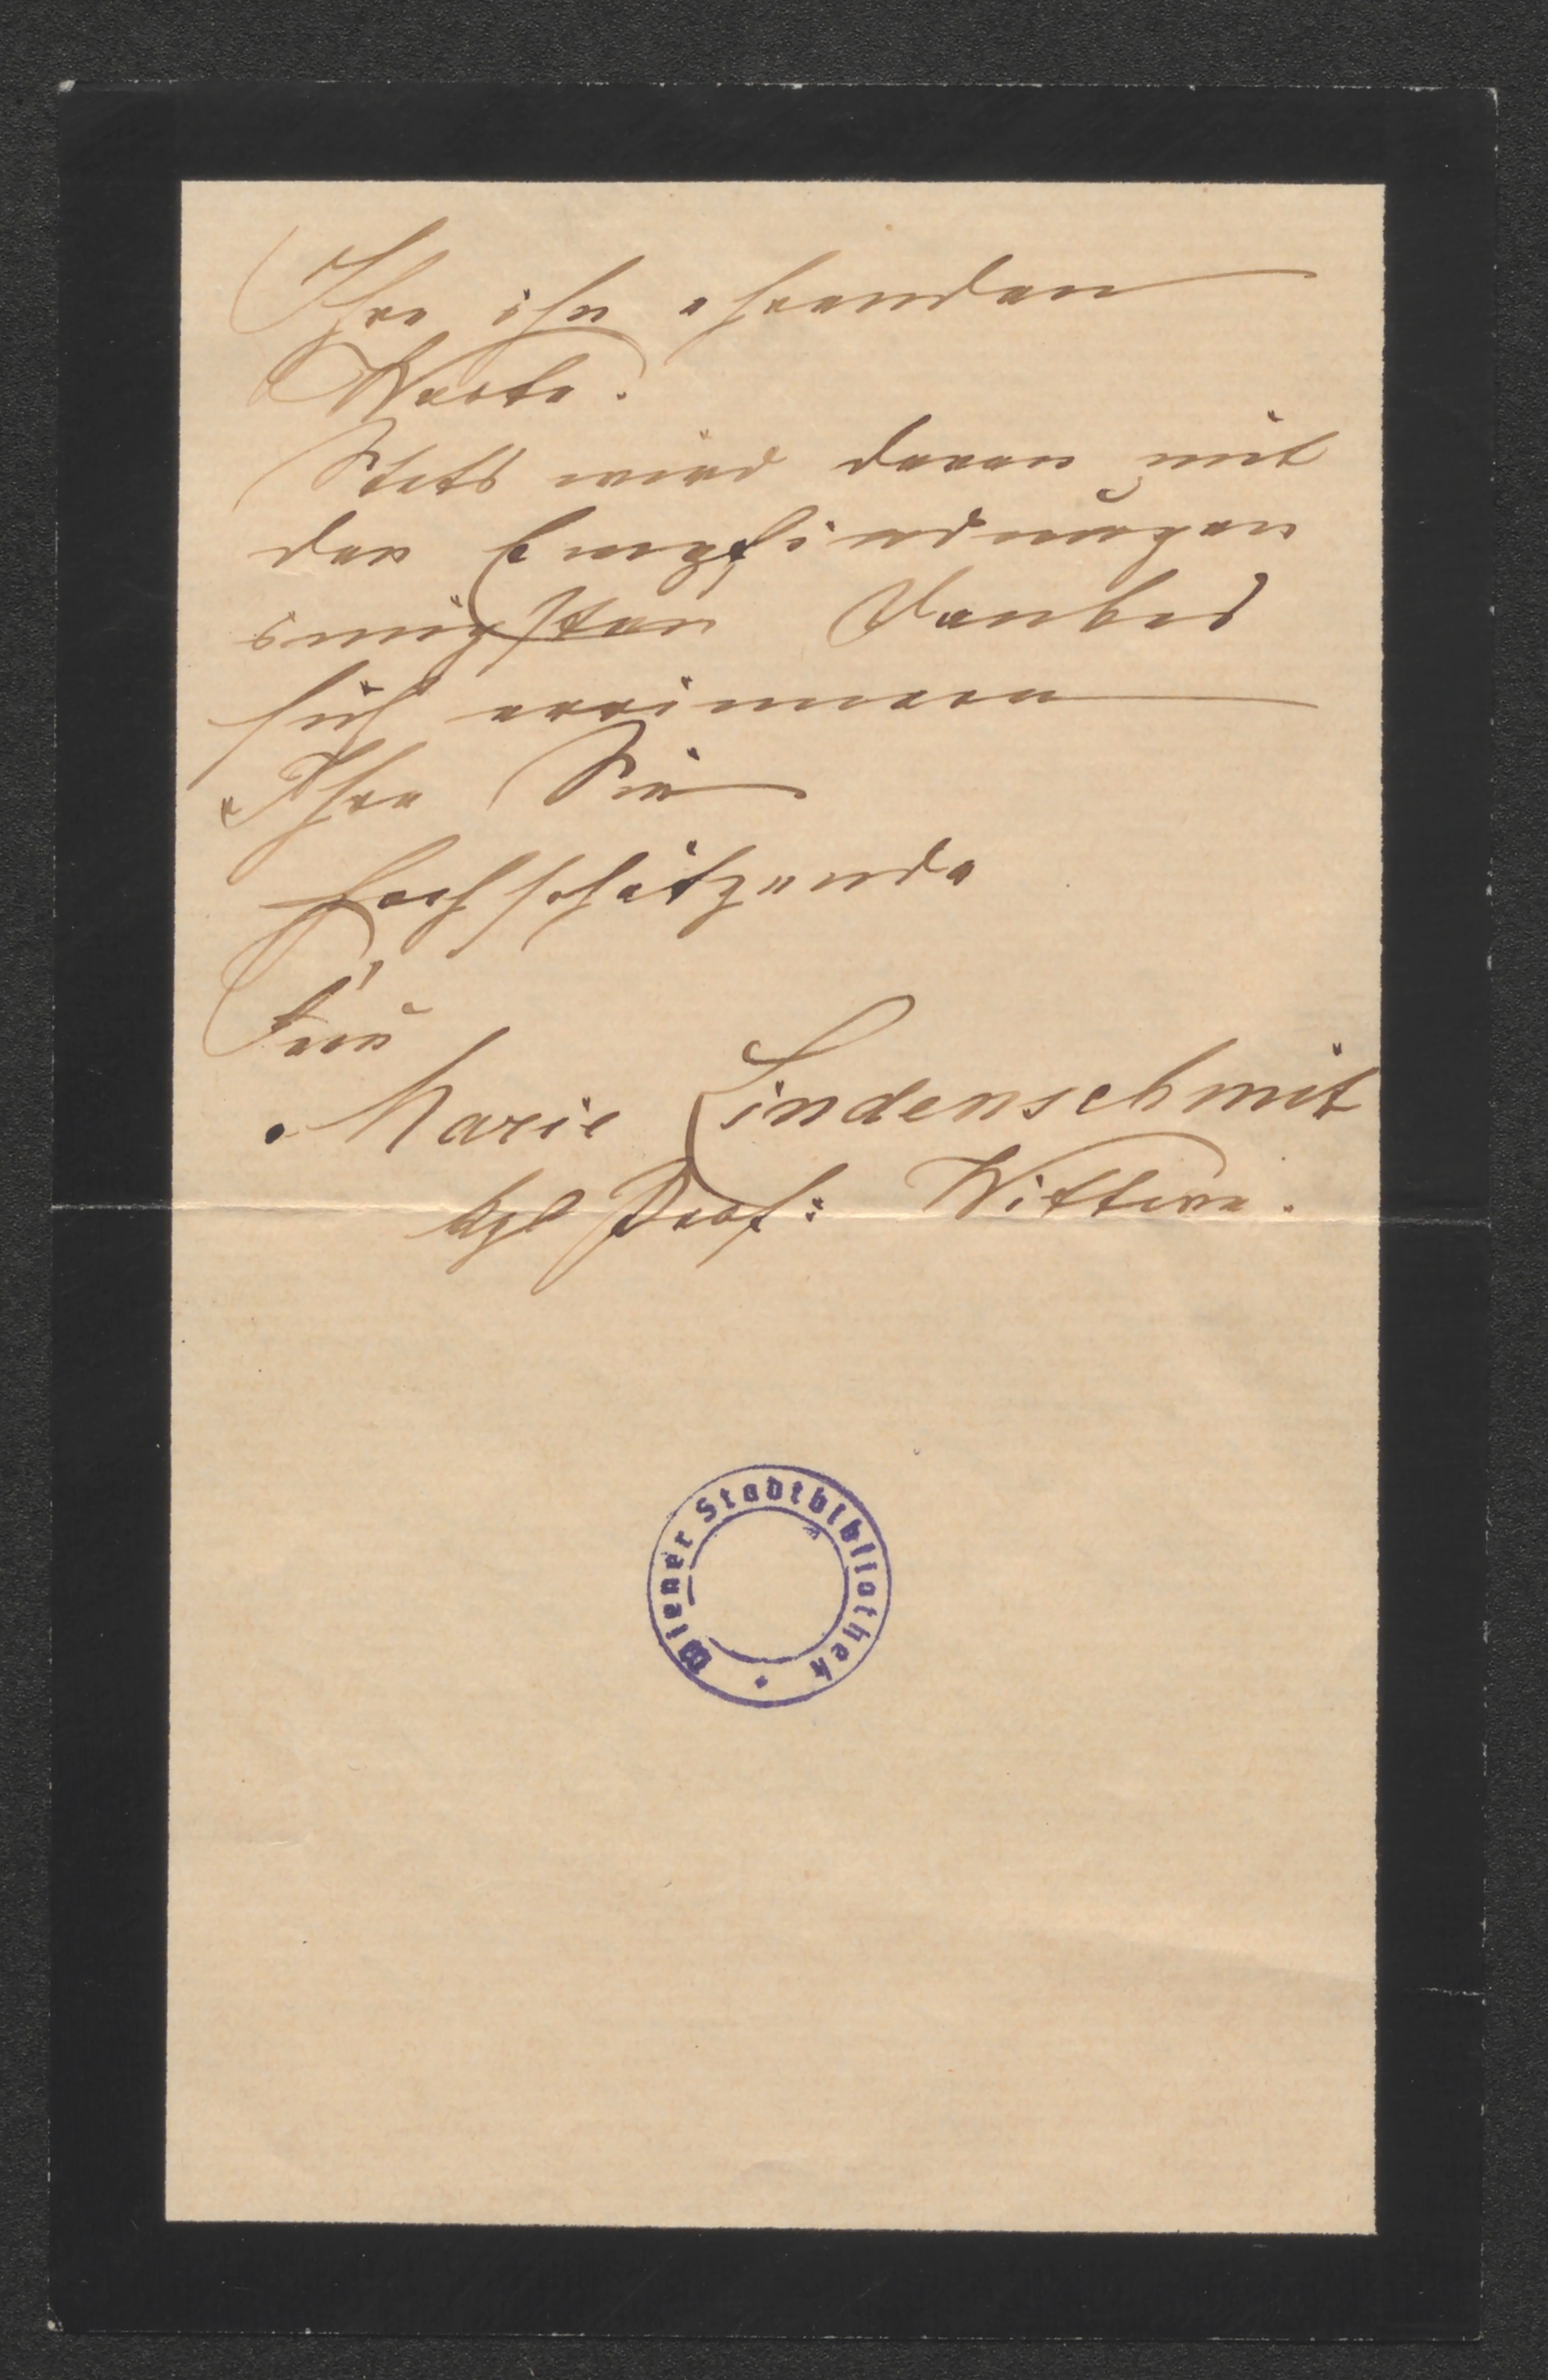 Ihre ihn ehrenden
Worte.
Stets wird daran mit
den Empfindungen
innigsten Dankes
sich errinnern
Ihre Sie
hochschätzende
Frau
Marie Lindenschmit
kgl Prof: Wittwe.
Wiener Stadtbibliothek